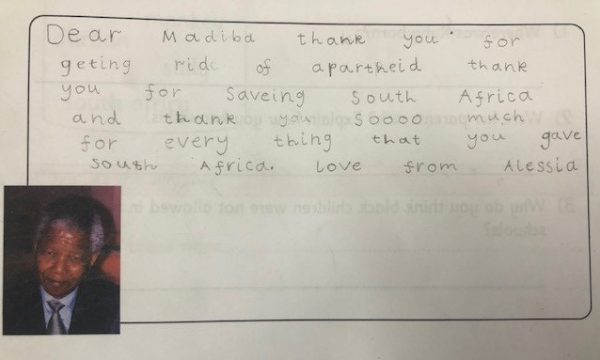 Dear Madiba thank you for
geting rid of apartheid thank
you for Saveing South Africa
and thank you Soooo much
for every thing that you gave
South Africa. Love from Alessia